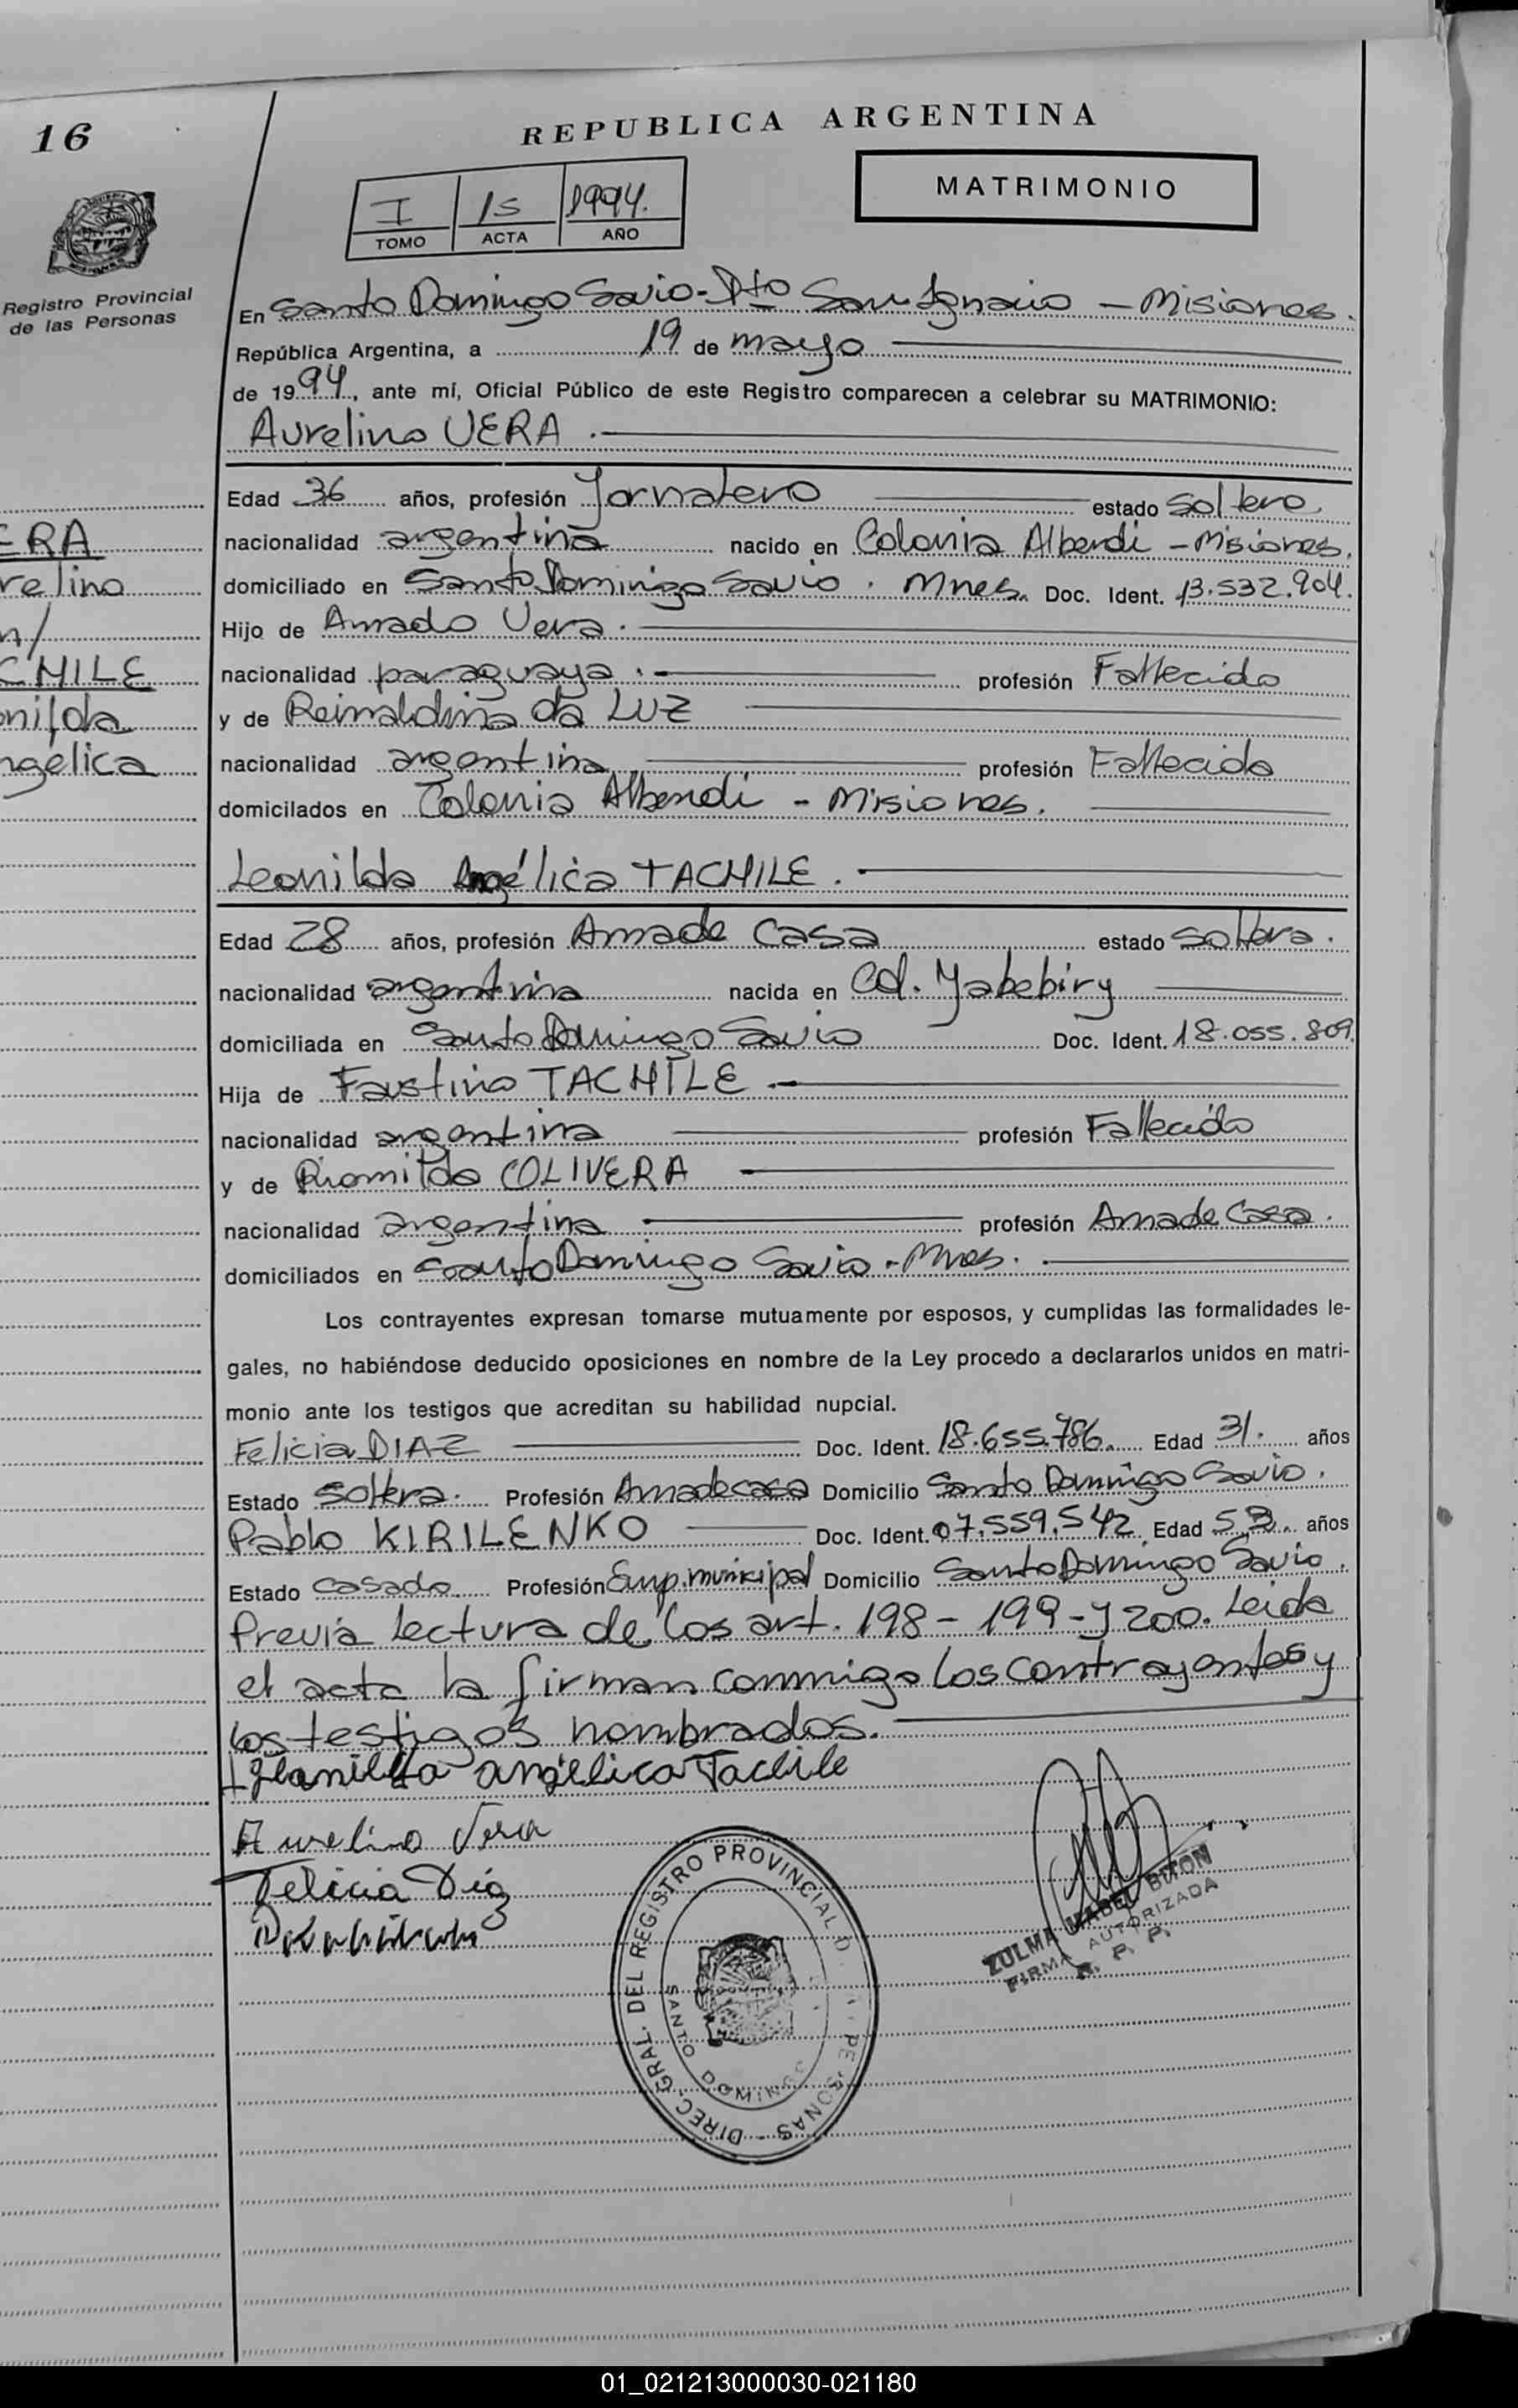 16
REPUBLICA ARGENTINA
MATRIMONIO
I 15 1994.
TOMO ACTA AÑO
Registro Provincial
de las Personas
En Santo Domingo Savio - Dto San Ignacio - Misiones.
República Argentina, a 19 de mayo
de 1994, ante mí, Oficial Público de este Registro comparecen a celebrar su MATRIMONIO:
Aurelino VERA.
Edad 36 años, profesión Jornalero estado soltero
ERA nacionalidad argentina nacido en Colonia Alberdi - Misiones.
relino domiciliado en Santo Domingo Savio. Mnes. Doc. Ident. 13.532.904.
n/ Hijo de Amado Vera.
CHILE nacionalidad paraguaya. profesión Fallecido
onilda y de Reinaldina da LUZ
ngélica nacionalidad argentina profesión Fallecida
domicilados en Colonia Alberdi - Misiones.
Leonilda Angélica TACHILE.
Edad 28 años, profesión Ama de Casa estado soltera.
nacionalidad argentina nacida en Col. Yabebiry
domiciliada en Santo Domingo Savio Doc. Ident. 18.055.809.
Hija de Faustino TACHILE.
nacionalidad argentina profesión Fallecido
y de Romilda OLIVERA
nacionalidad argentina profesión Ama de Casa.
domiciliados en Santo Domingo Savio - Mnes.
Los contrayentes expresan tomarse mutuamente por esposos, y cumplidas las formalidades le-
gales, no habiéndose deducido oposiciones en nombre de la Ley procedo a declararlos unidos en matri-
monio ante los testigos que acreditan su habilidad nupcial.
Felicia DIAZ Doc. Ident. 18.655.786. Edad 31. años
Estado soltera. Profesión Ama de casa Domicilio Santo Domingo Savio.
Pablo KIRILENKO Doc. Ident. 07.559.542 Edad 53. años
Estado casado Profesión Emp. municipal Domicilio Santo Domingo Savio.
Previa lectura de los art. 198 - 199 - y 200. Leida
el acta la firman conmigo los contrayentes y
los testigos nombrados.
Leonilda angelica Tachile
Aurelino Vera
Felicia Diaz
DIREC. GRAL. DEL REGISTRO PROVINCIAL D PERSONAS
SANTO DOMINGO
ZULMA MABEL BITÓN
FIRMA AUTORIZADA
R. P. P.
01_021213000030-021180